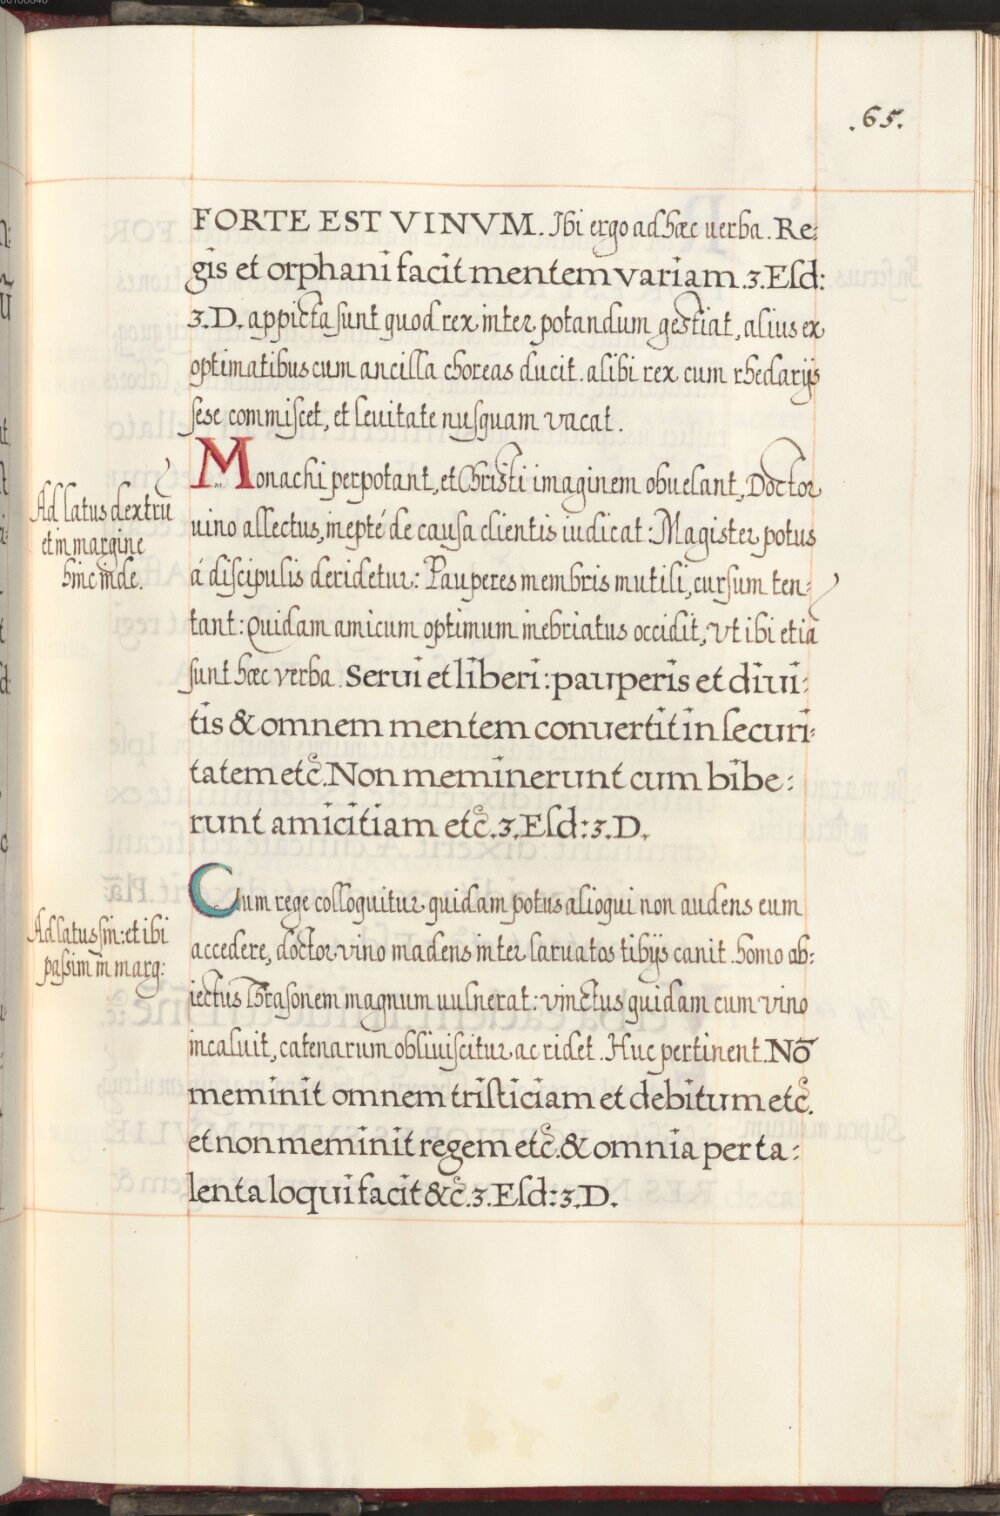 .65.
FORTE EST VINVM. Ibi ergo ad hæc uerba. Re:
gis et orphani facit mentem variam .3. Esd:
3. D. appicta sunt quod rex inter potandum gestiat, alius ex
optimatibus cum ancilla choreas ducit. alibi rex cum rhedarijs
sese commiscet, et leuitate nusquam vacat.
Monachi perpotant, et Christi imaginem obuelant, Doctor
uino allectus, ineptè de causa clientis iudicat: Magister potus
á discipulis deridetur: Pauperes membris mutili, cursum ten-
tant: Quidam amicum optimum inebriatus occidit, Vt ibi etiā
sunt hæc verba. Serui et liberi: pauperis et diui:
tis & omnem mentem conuertit in securi:
tatem etc̃. Non meminerunt cum bibe:
runt amicitiam etc̃. 3. Esd: 3. D.
Ad latus dextrū
et in margine
hinc inde.
Cum rege colloquitur quidam potus alioqui non audens eum
accedere, doctor vino madens inter laruatos tibijs canit. homo ab:
iectus Thrasonem magnum uulnerat: vinctus quidam cum vino
incaluit, catenarum obliuiscitur ac ridet. Huc pertinent. Nō
meminit omnem tristiciam et debitum etc̃.
et non meminit regem etc̃. & omnia per ta:
lenta loqui facit &c̃. 3. Esd: 3. D.
Ad latus sin: et ibi
passim in marg: